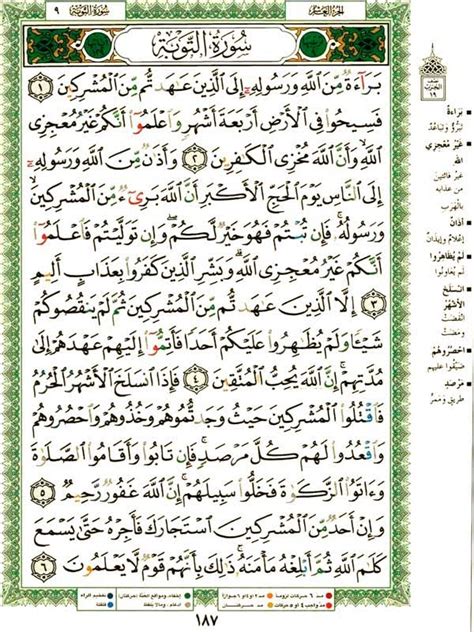 ٩ سُورَةُ التَّوْبَةِ
الجُزءُ العَاشِر
سُورَةُ التَّوْبَةِ
بَرَآءَةٌ مِّنَ ٱللَّهِ وَرَسُولِهِۦٓ إِلَى ٱلَّذِينَ عَٰهَدتُّم مِّنَ ٱلْمُشْرِكِينَ ١
فَسِيحُوا۟ فِى ٱلْأَرْضِ أَرْبَعَةَ أَشْهُرٍ وَٱعْلَمُوٓا۟ أَنَّكُمْ غَيْرُ مُعْجِزِى
ٱللَّهِ وَأَنَّ ٱللَّهَ مُخْزِى ٱلْكَٰفِرِينَ ٢ وَأَذَٰنٌ مِّنَ ٱللَّهِ وَرَسُولِهِۦٓ
إِلَى ٱلنَّاسِ يَوْمَ ٱلْحَجِّ ٱلْأَكْبَرِ أَنَّ ٱللَّهَ بَرِىٓءٌ مِّنَ ٱلْمُشْرِكِينَ
وَرَسُولُهُۥ فَإِن تُبْتُمْ فَهُوَ خَيْرٌ لَّكُمْ وَإِن تَوَلَّيْتُمْ فَٱعْلَمُوٓا۟
أَنَّكُمْ غَيْرُ مُعْجِزِى ٱللَّهِ وَبَشِّرِ ٱلَّذِينَ كَفَرُوا۟ بِعَذَابٍ أَلِيمٍ
٣ إِلَّا ٱلَّذِينَ عَٰهَدتُّم مِّنَ ٱلْمُشْرِكِينَ ثُمَّ لَمْ يَنقُصُوكُمْ
شَيْـًٔا وَلَمْ يُظَٰهِرُوا۟ عَلَيْكُمْ أَحَدًا فَأَتِمُّوٓا۟ إِلَيْهِمْ عَهْدَهُمْ إِلَىٰ
مُدَّتِهِمْ إِنَّ ٱللَّهَ يُحِبُّ ٱلْمُتَّقِينَ ٤ فَإِذَا ٱنسَلَخَ ٱلْأَشْهُرُ ٱلْحُرُمُ
فَٱقْتُلُوا۟ ٱلْمُشْرِكِينَ حَيْثُ وَجَدتُّمُوهُمْ وَخُذُوهُمْ وَٱحْصُرُوهُمْ
وَٱقْعُدُوا۟ لَهُمْ كُلَّ مَرْصَدٍ فَإِن تَابُوا۟ وَأَقَامُوا۟ ٱلصَّلَوٰةَ
وَءَاتَوُا۟ ٱلزَّكَوٰةَ فَخَلُّوا۟ سَبِيلَهُمْ إِنَّ ٱللَّهَ غَفُورٌ رَّحِيمٌ ٥
وَإِنْ أَحَدٌ مِّنَ ٱلْمُشْرِكِينَ ٱسْتَجَارَكَ فَأَجِرْهُ حَتَّىٰ يَسْمَعَ
كَلَٰمَ ٱللَّهِ ثُمَّ أَبْلِغْهُ مَأْمَنَهُۥ ذَٰلِكَ بِأَنَّهُمْ قَوْمٌ لَّا يَعْلَمُونَ ٦
الحزب
١٩
بَرَاءَةٌ
تَبَرُّؤٌ وَتَبَاعُدٌ
غَيْرُ مُعْجِزِي
الله
غير فائتين
من عذابه
بالهَرَب
أذَانٌ
إعلامٌ وإيذانٌ
لَمْ يُظَاهِرُوا
لَمْ يُعَاوِنُوا
انْسَلَخَ
الأشْهُرُ
انْقَضَتْ
وَمَضَتْ
احْصُرُوهُمْ
ضَيِّقُوا عليهم
مَرْصَدٍ
طَرِيقٍ وَمَمَرٍّ
مد ٦ حركات لزوماً
مد ٢ او ٤ او ٦ جوازاً
إخفاء، ومواقع الغنّة (حركتان)
تفخيم الراء
مد واجب ٤ او ٥ حركات
مد حركتان
ادغام، وما لا يُلفظ
قلقلة
١٨٧